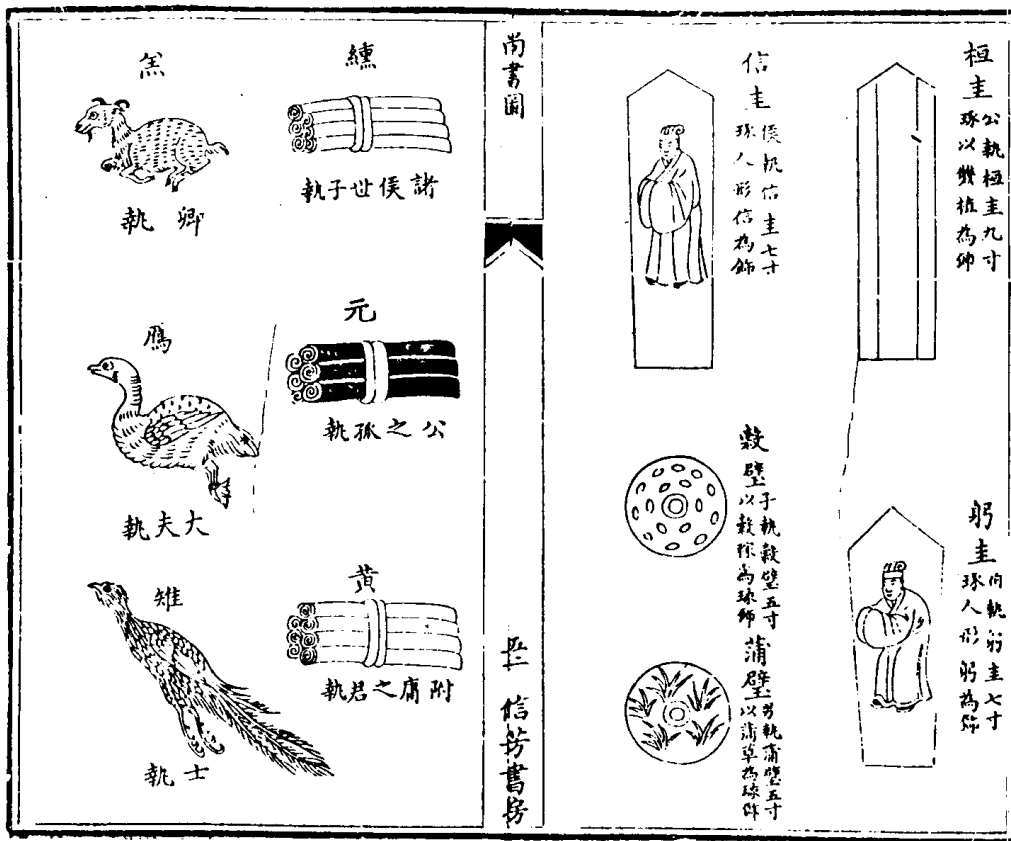 桓圭
公執桓圭九寸
琢以雙植為飾
信圭
侯執信圭七寸
琢人形信為飾
躬圭
伯執躬圭七寸
琢人形躬為飾
穀璧
子執穀璧五寸
以穀稼為琢飾
蒲璧
男執蒲璧五寸
以蒲草為琢飾
尚書圖
信芳書房
纁
諸侯世子執
元
公之孤執
黄
附庸之君執
羔
卿執
鴈
大夫執
雉
士執